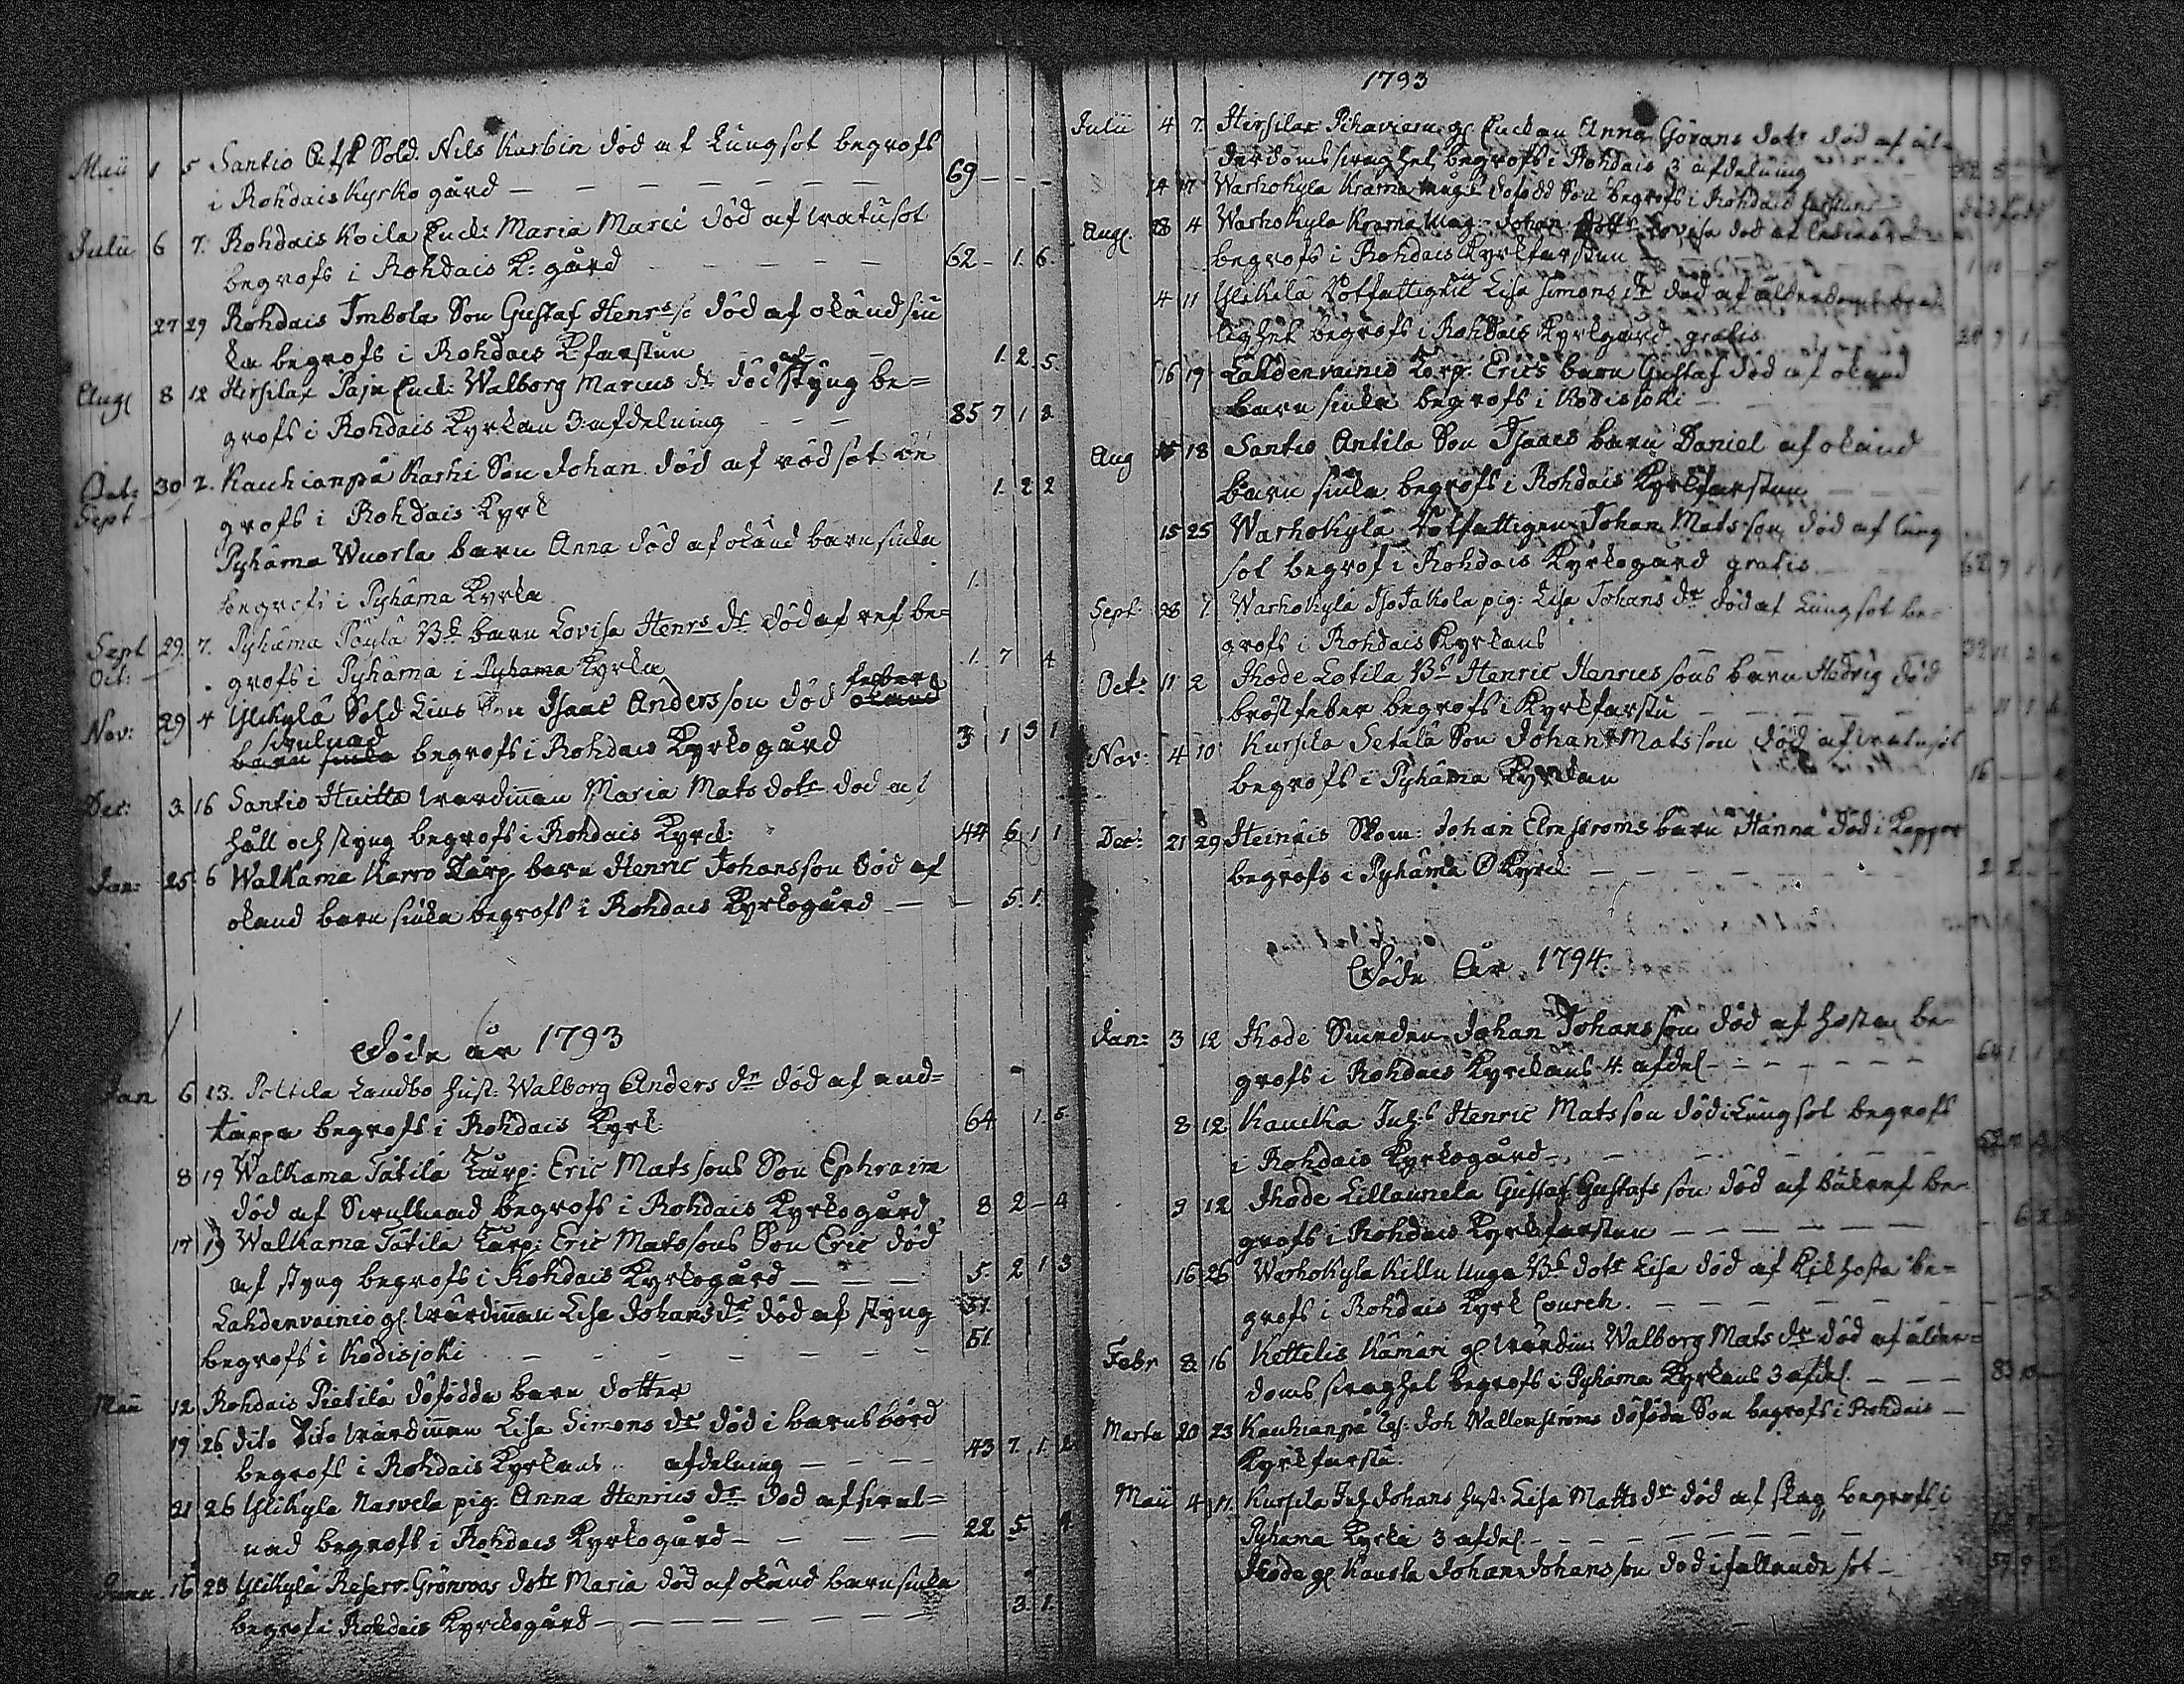 Maii 1 5 Santio Afsk Sold. Nils Kurbin död af Lungsot begrofs
i Rohdais Kyrko gård — — — — — — — 69 — — —
Julii 6 7. Rohdais Koila Enck: Maria Marci död af watusot
begrofs i Rohdais K: gård — — — — — 62 — 1. 6.
27 29 Rohdais Imbola Son Gustaf Henrs so död af okänd siu
ka begrofs i Rohdais K farstun — — 1. 2. 5.
Aug 8 12 Hirsilax Enck: Walborg Marcus dr död af styng be=
grofs i Rohdais Kyrkan 3 afdelning — — — 85 7 1 3
Oct: 30 2. Kauhianpä Karhi Son Johan död af rödsot be
Sept
grofs i Rohdais Kyrk 1. 2 2
Pyhäma Wuorla barn Anna död af okänd barnsiuka
begrofs i Pyhäma Kyrka 1.
Sept 29. 7. Pyhäma Pöylä Bd barn Lovisa Henrs dr död af ref be=
Oct:
grofs i Pyhäma i Pyhama Kyrka 1. 7 4
feber
Nov: 29 4 Ylikylä Sold Lius Son Isaac Andersson död okänd
swulnad
barn siuka begrofs i Rohdais Kyrkogård 3 1 3 1
Dec: 3. 16 Santio Huitto wärdinnan Maria Mats dotr död af
håll och styng begrofs i Rohdais Kyrck: 44 6 1 1
Jan: 25 6 Walkama Karro Tårp barn Henric Johansson död af
okänd barn siuka begrofs i Rohdais Kyrkogård — — 5. 1.
Döde år 1793
Jan 6 13. Poltila Landbo hust: Walborg Anders dr död af and=
täppa begrofs i Rohdais Kyrk 64 1. 5
8 19 Walkama Tätilä Tårp: Eric Matssons Son Ephraim
död af Swullnad begrofs i Rohdais Kyrkogård 8 2 — 4
17 19 Walkama Tätila Tårp: Eric Matssons Son Eric död
af styng begrofs i Rohdais Kyrkogård — — — 5. 2 1 3
Lahdenvainio gl wärdinnan Lisa Johans dr död af styng 51
begrofs i Kodisjoki — — — — — — — 51
Maii 12 Rohdais Pietilä döfödda barn dotter
19 26 dito dito wärdinnan Lisa Simons dr död i barnsbörd
begrofs i Rohdais Kyrkans .. afdelning — — — — 43 7. 1. 2
21 26 Ylikyla Narvela pig: Anna Henrics dr död af swul=
nad begrofs i Rohdais Kyrkogård — — — — 22 5 4
16 23 Ylikylä Reserv. Grönroos dotr Maria död af okänd barnsiuka
begrofs i Rohdais Kyrckogård — — — — — — — 3. 1.
1793
Julii 4 7. Hirsilax gl Enckan Anna Görans dotr död af ål-
derdomsswaghet begrofs i Rohdais 3 afdelning
14 17 Warhokyla Krama döfödd Son begrofs i Rohdais farstun
Aug 28 4 Warhokyla Krama Lovisa död af
begrofs i Rohdais Kyrkfarstun — 1 10 — 5
4 11 Ylikilä Rotfattighi Lisa Simons dr död af ålderdoms
lighet begrofs i Rohdais Kyrkgård gratis
16 19 Lahdenvainio Torp: Erics barn Gustaf död af okänd
barn siuka begrofs i Kodisjoki — — — 5.
Aug 15 18 Santio Antila Son Isaacs barn Daniel af okänd
barn siuka begrofs i Rohdais Kyrkfarstun — — —
15 25 Warhokylä Rotfattigen Johan Mats son död af lung
sot begrof i Rohdais Kyrkogård gratis 62 7 1 1
Sept: 28 1 Warhokylä Isotakola pig: Lisa Johans dr död af Lungsot be=
grofs i Rohdais Kyrkans
Oct: 11 2 Ihode Lotila Bd Henric Henrics sons barn Hedvig död
bröstfeber begrofs i Kyrkfarstu — — — —
Nov: 4 10 Kursila Setälä Son Johan Matsson död af watusot
begrofs i Pyhäma Kyrckan 16 —
Dec: 21 29 Heinäis Skom: Johan Elmströms barn Hanna död i Koppor
begrofs i Pyhäma Kyrck — — — — — — — 2 2
Döde År 1794.
Jan: 3 12 Ihode Smeden Johan Johansson död af hosta be-
grofs i Rohdais Kyrckans 4 afdel — — — — — 64 1
8 12 Kaukka Inh: Henric Matsson död i Lungsot begrofs
i Rohdais Kyrkogård — — — — — —
9 12 Ihode Lillaunela Gustaf Gustafs son död af Bukref be-
grofs i Rohdais Kyrkfarstun — — — — — — 6 2
16 26 Warhokyla Killu Unga Bd dotr Lisa död af Kikhosta be-
grofs i Rohdais Kyrk — — — — — —
Febr 8 16 Kettelis Kämäri gl wärdin: Walborg Mats dr död af ålder-
doms swaghet begrofs i Pyhäma Kyrkans 3 afdel. — — — 83
Martii 20 23 Kauhianpä Joh Wallenströms döfödde Son begrofs i Rohdais —
Kyrkfarstu.
Maii 4 11. Kursila Inh Johans hust: Lisa Matts dr död af slag begrofs i
Pyhama Kyrka 3 afdel — — — — — — —
Ihode gl Kausla Johan Johansson död i fallande sot — 59 9